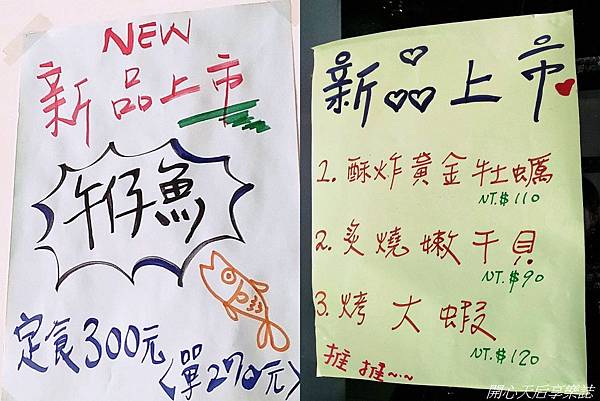 NEW
新品上市
午仔魚
定食300元
〈單270元〉
新品上市
1. 酥炸黃金牡蠣
NT.$110
2. 炙燒嫩干貝
NT.$90
3. 烤大蝦
NT.$120
推推~·~
開心天后享樂誌